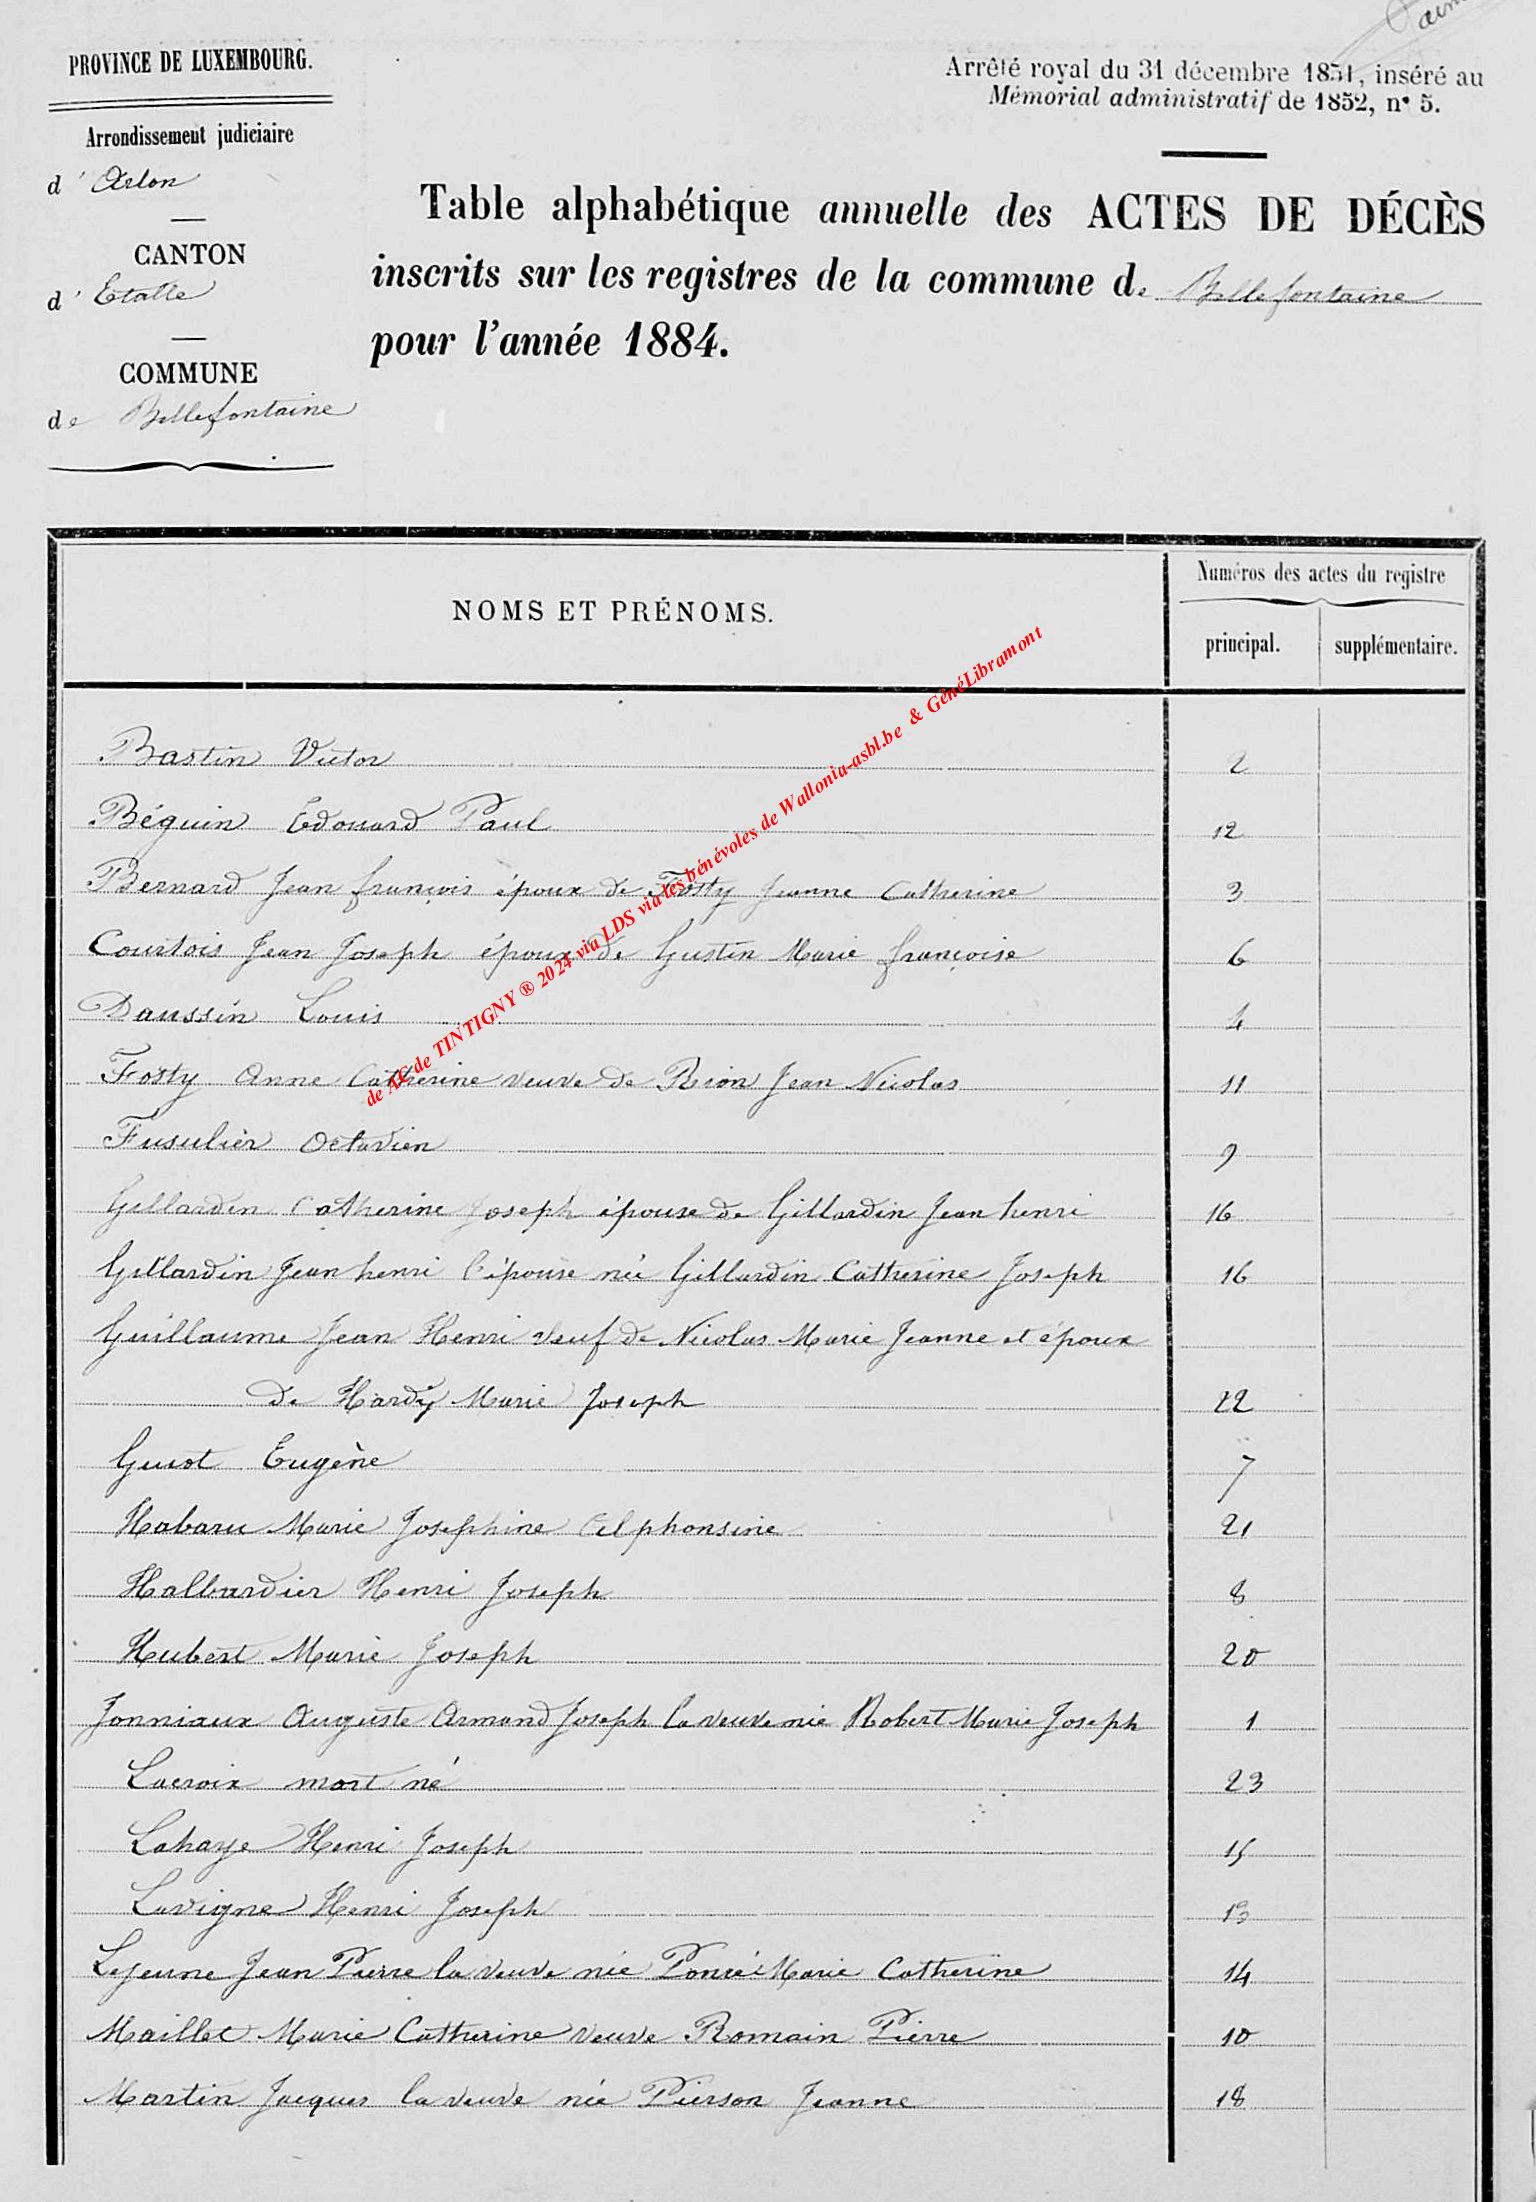 PROVINCE DE LUXEMBOURG.
Arrondissement judiciaire
d'Arlon
CANTON
d'Etalle
COMMUNE
de Bellefontaine
Arrêté royal du 31 décembre 1851, inséré au
Mémorial administratif de 1852, n° 5.
Table alphabétique annuelle des ACTES DE DÉCÈS
inscrits sur les registres de la commune de Bellefontaine
pour l'année 1884.
NOMS ET PRÉNOMS.
Numéros des actes du registre
principal. supplémentaire.
Bastin Victor 2
Béguin Edouard Paul 12
Bernard Jean françois époux de Fosty Jeanne Catherine 3
Courtois Jean Joseph époux de Gustin Marie françoise 6
Daussin Louis 4
Fosty Anne Catherine veuve de Rion Jean Nicolas 11
Fusulier Octavien 9
Gillardin Catherine Joseph épouse de Gillardin Jean henri 16
Gillardin Jean henri l'épouse née Gillardin Catherine Joseph 16
Guillaume Jean Henri veuf de Nicolas Marie Jeanne et époux
de Hardy Marie Joseph 22
Guiot Eugène 7
Habaru Marie Josephine Alphonsine 21
Halbardier Henri Joseph 8
Hubert Marie Joseph 20
Jonniaux Auguste Armand Joseph la veuve née Robert Marie Joseph 1
Lacroix mort né 23
Lahaye Henri Joseph 15
Lavigne Henri Joseph 13
Lejeune Jean Pierre la veuve née Poncé Marie Catherine 14
Maillet Marie Catherine veuve Romain Pierre 10
Martin Jacques la veuve née Pierson Jeanne 18
de AC de TINTIGNY ® 2024 via LDS via les bénévoles de Wallonia-asbl.be & GénéLibramont